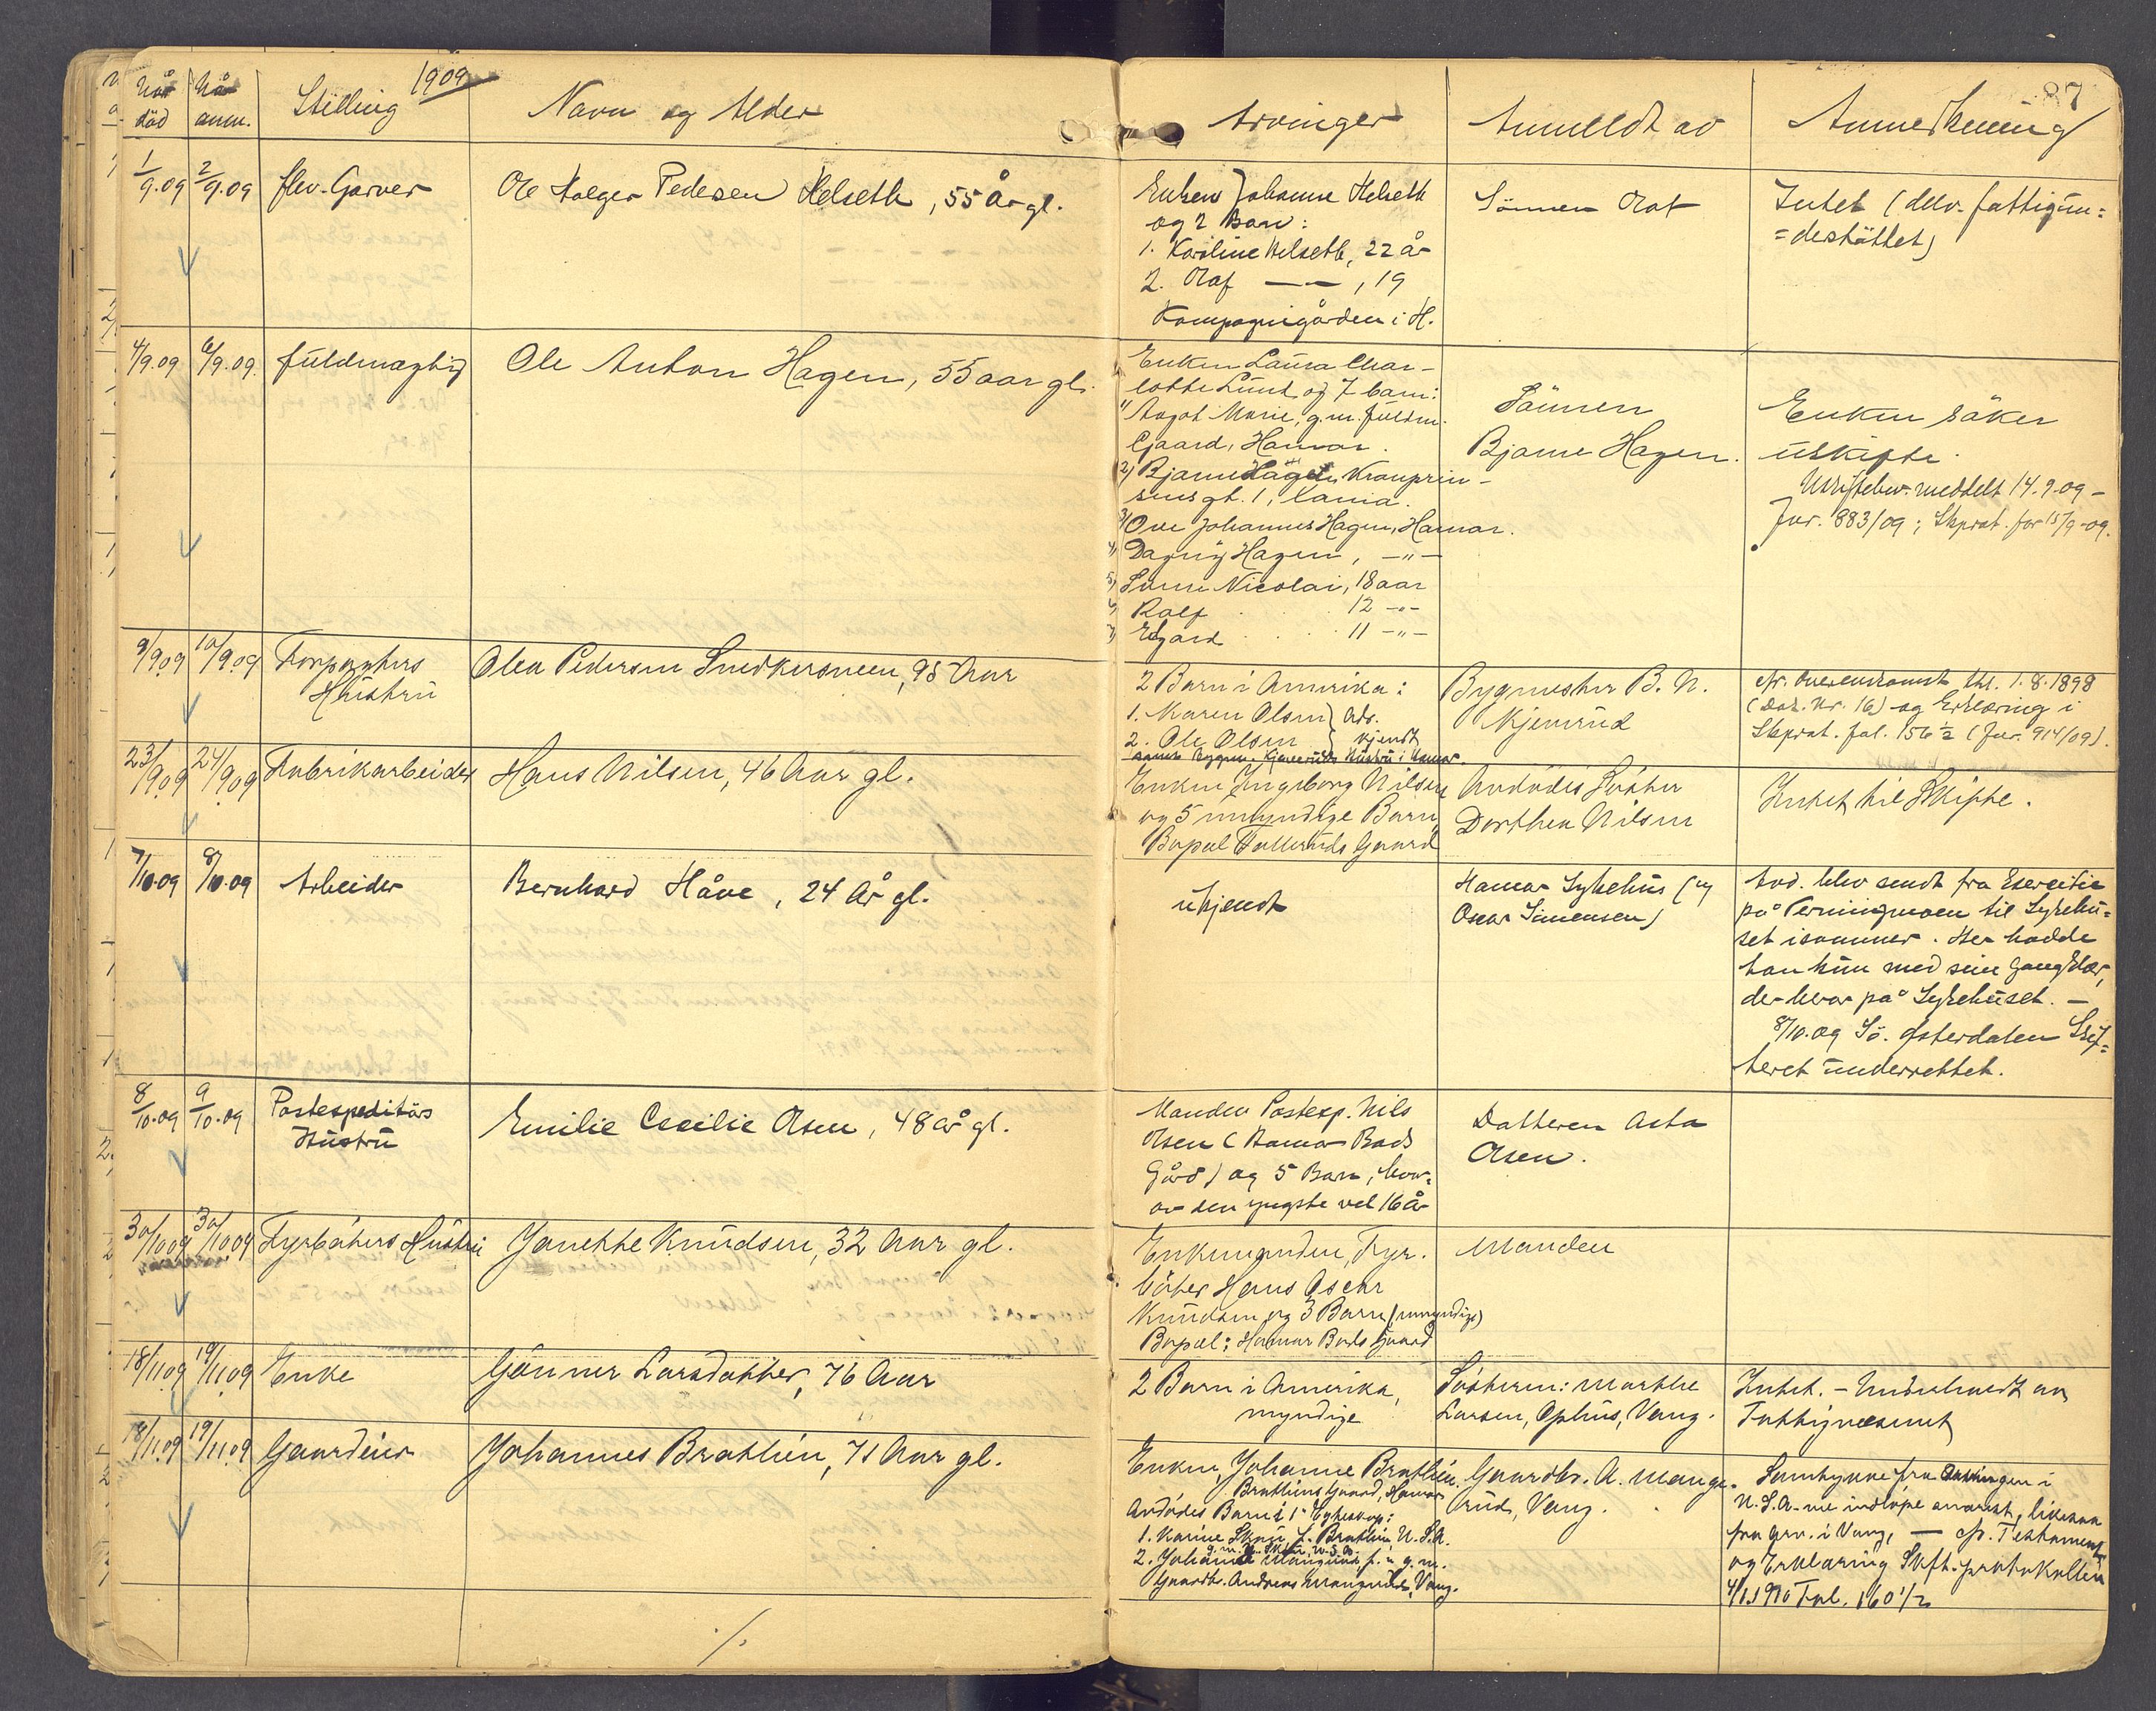 1909
Når
död
Når
anm.
Stilling
Navn og Alder
Arvinger
Anmeldt av
Anmerkning
87
1/9.09
2/9.09
flev. Garver
Ole Holger Pedersen Helseth, 55 År gl.
Enken Johanne Helseth
og 2 Barn:
1. Karoline Helseth, 22 år
2. Olaf —"—, 19
Kompagnigården i H.
Sönnen Olaf
Intet (delv. fattigun=
=derstöttet)
4/9.09
6/9.09.
fuldmægtig
Ole Anton Hagen, 55 aar gl.
Enken Laura Char-
lotte Lund og 7 barn:
1) Aagot Marie, g.m. fuldm.
Gjaard, Hamar.
2) Bjarne Hagen, Kronprin-
sensgt. 1, Kania.
3) Ove Johannes Hagen, Hamar.
4) Dagny Hagen, —"—
5) Sverre Nicolai, 18 aar
6) Rolf 12 —"—
7) Edgard 11 —"—
Sönnen
Bjarne Hagen.
Enken söker
uskifte.
Uskiftebev. meddelt 14.9.09 -
Jur. 883/09; Skprot. for 15/9-09.
9/9.09
10/9.09
Hustru
Olea Pedersen Snedkersveen, 95 Aar
2 Barn i Amerika:
1. Karen Olsen } Ads.
2. Ole Olsen } kjendt
samt Bygm. Kjemruds Hustru i Hamar.
Bygmester B. N.
Kjemrud
cfr. Overenskomst thl. 1.8.1898
(Dok. Nr. 16) og Erklæring i
Skprot. fol. 156 ½ (Jur. 914/09).
23/9.09
24/9.09
Fabrikarbeider
Hans Nilsen, 46 Aar gl.
Enken Ingeborg Nilsen
og 5 umyndige Barn
Bopæl Gaard
Avdödes Söster
Dorthea Nilsen
Intet til Skifte.
7/10.09
8/10.09
Arbeider
Bernhard Håve, 24 År gl.
ukjendt
Hamar Sykehus (v
Oscar Simensen)
Avd. blev sendt fra Exercitie
på Terningmoen til Sykehu=
set isommer. Her hadde
han kun med sine Gangklær,
der beror på Sykehuset. —
8/10.09 Sö. Østerdalen Skif=
teret underrettet.
8/10.09
9/10.09
Postexpeditörs
Hustru
Emilie Cecilie Olsen, 48 år gl.
Manden Postexp. Nils
Olsen (Hamar Bads
Gård) og 5 Barn, hvor=
av den yngste vel 16 år
Datteren Asta
Olsen.
30/10 09
30/10 09
Fyrböters Hustru
Janethe Knudsen, 32 Aar gl.
Enkemanden, Fyr.
böter Hans Oscar
Knudsen og 3 Barn (umyndige)
Bopæl: Hamar Bads Gaard
Manden
18/11.09
19/11.09
Enke
Gönner Larsdatter, 76 Aar
2 Barn i Amerika,
myndige
Sösteren: Marthe
Larsen, Ophus, Vang.
Intet. - Underholdt av
Fattigvæsenet
18/11.09
19/11.09
Gaardeier
Johannes Brathlien, 71 Aar gl.
Enken, Johanne Brathlien,
Brathliens Gaard, Hamar
Avdödes Barn i 1ste Egteskap:
1. Karine f. Brathlien, U.S.A.
2. Johanne f. g.m.
Gaardbr. Andreas Mangerud, Vang.
Gaardbr. A. Mange-
rud, Vang.
Samtykke fra Datteren i
U.S.A. vil indløpe snarest, likesaa
fra i Vang, — cfr. Testament
og Erklæring Skft. protokollen
4/1.1910 Fol. 160 ½
./.